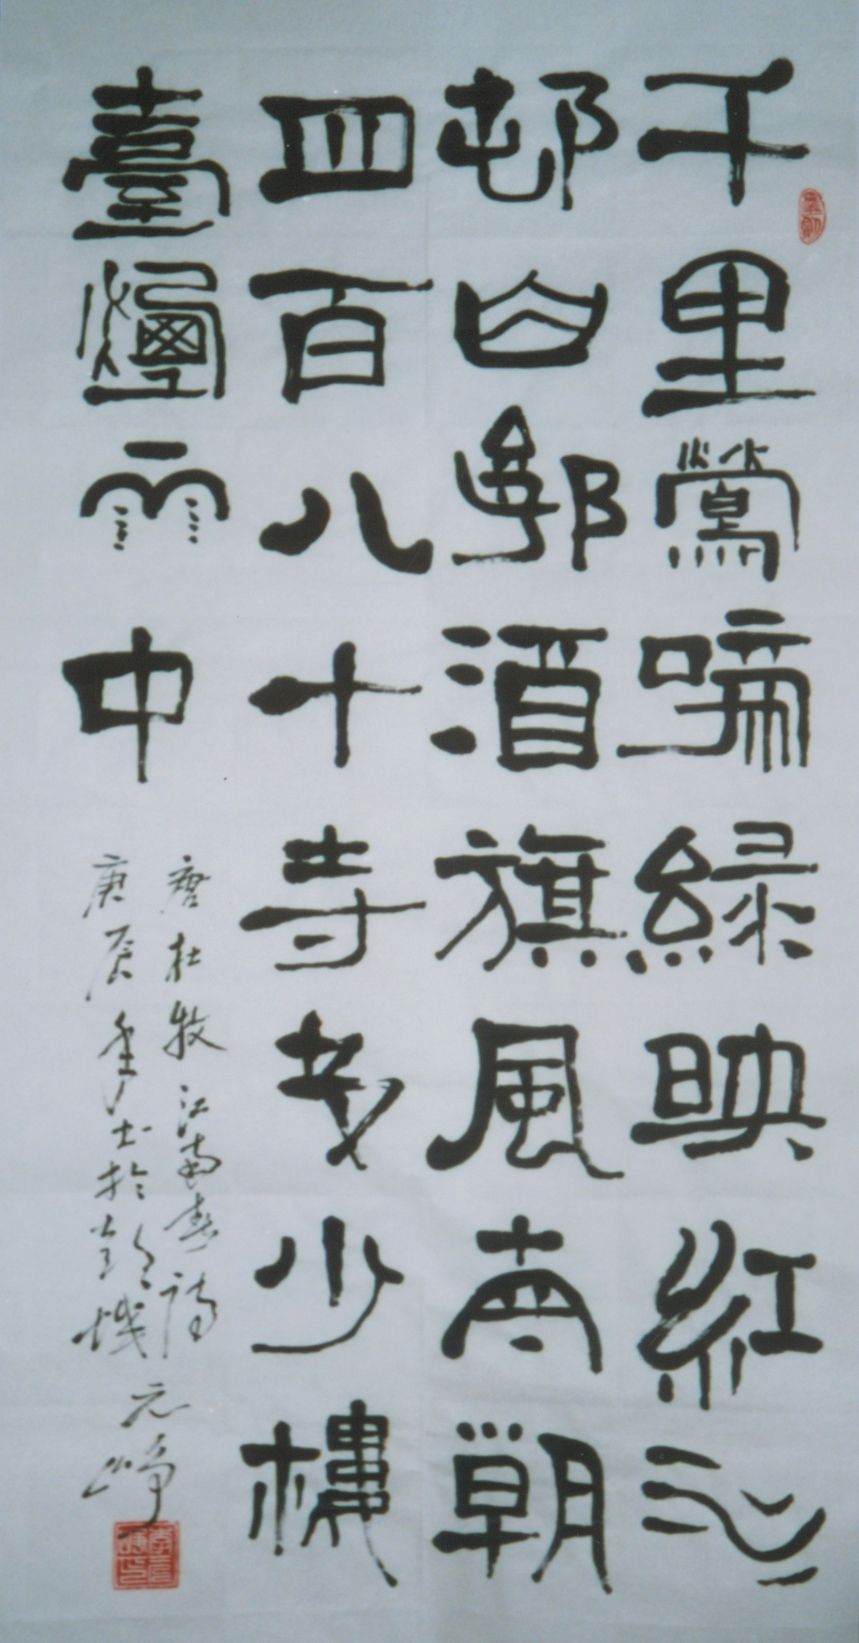 千里鶯啼緑映紅水
邨山郭酒旗風南朝
四百八十寺多少樓
臺煙雨中
唐杜牧江南春詩
庚辰年书於彭城
元崢